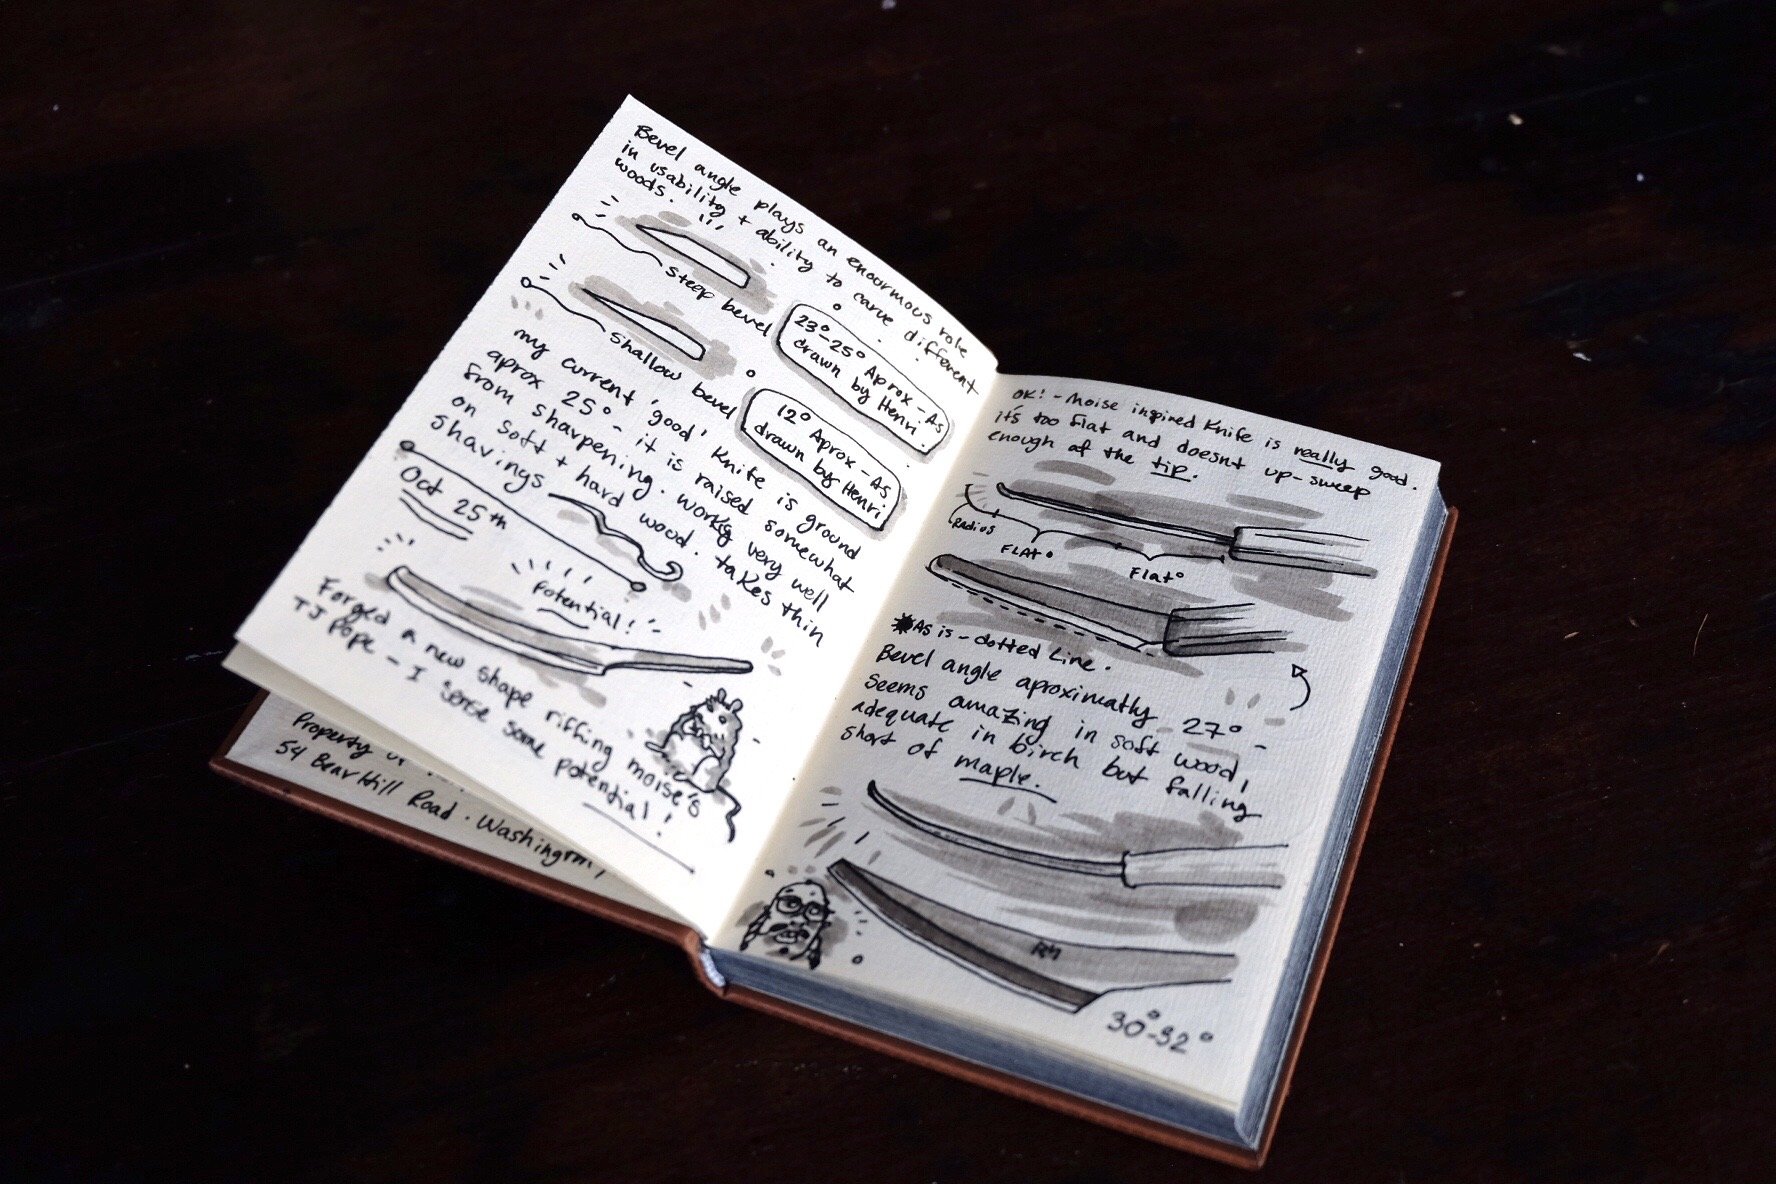 Bevel angle plays an enormous role
in usability + ability to carve different
woods.
steep bevel
23°-25° Aprox - As
drawn by Henri.
shallow bevel
12° Aprox - As
drawn by Henri
my current 'good' knife is ground
aprox 25° - it is raised somewhat
from sharpening. works very well
on soft + hard wood. takes thin
shavings
Oct 25th
potential!
Forged a new shape riffing moise's
TJ Pope - I sense some potential!
Property
54 Bear Hill Road. Washington,
OK! - Moise inspired Knife is really good.
it's too flat and doesnt up-sweep
enough at the tip.
Radius
FLAT
Flat
As is - dotted Line.
Bevel angle aproximatly 27° -
seems amazing in soft wood,
adequate in birch but falling
short of maple.
30°-32°